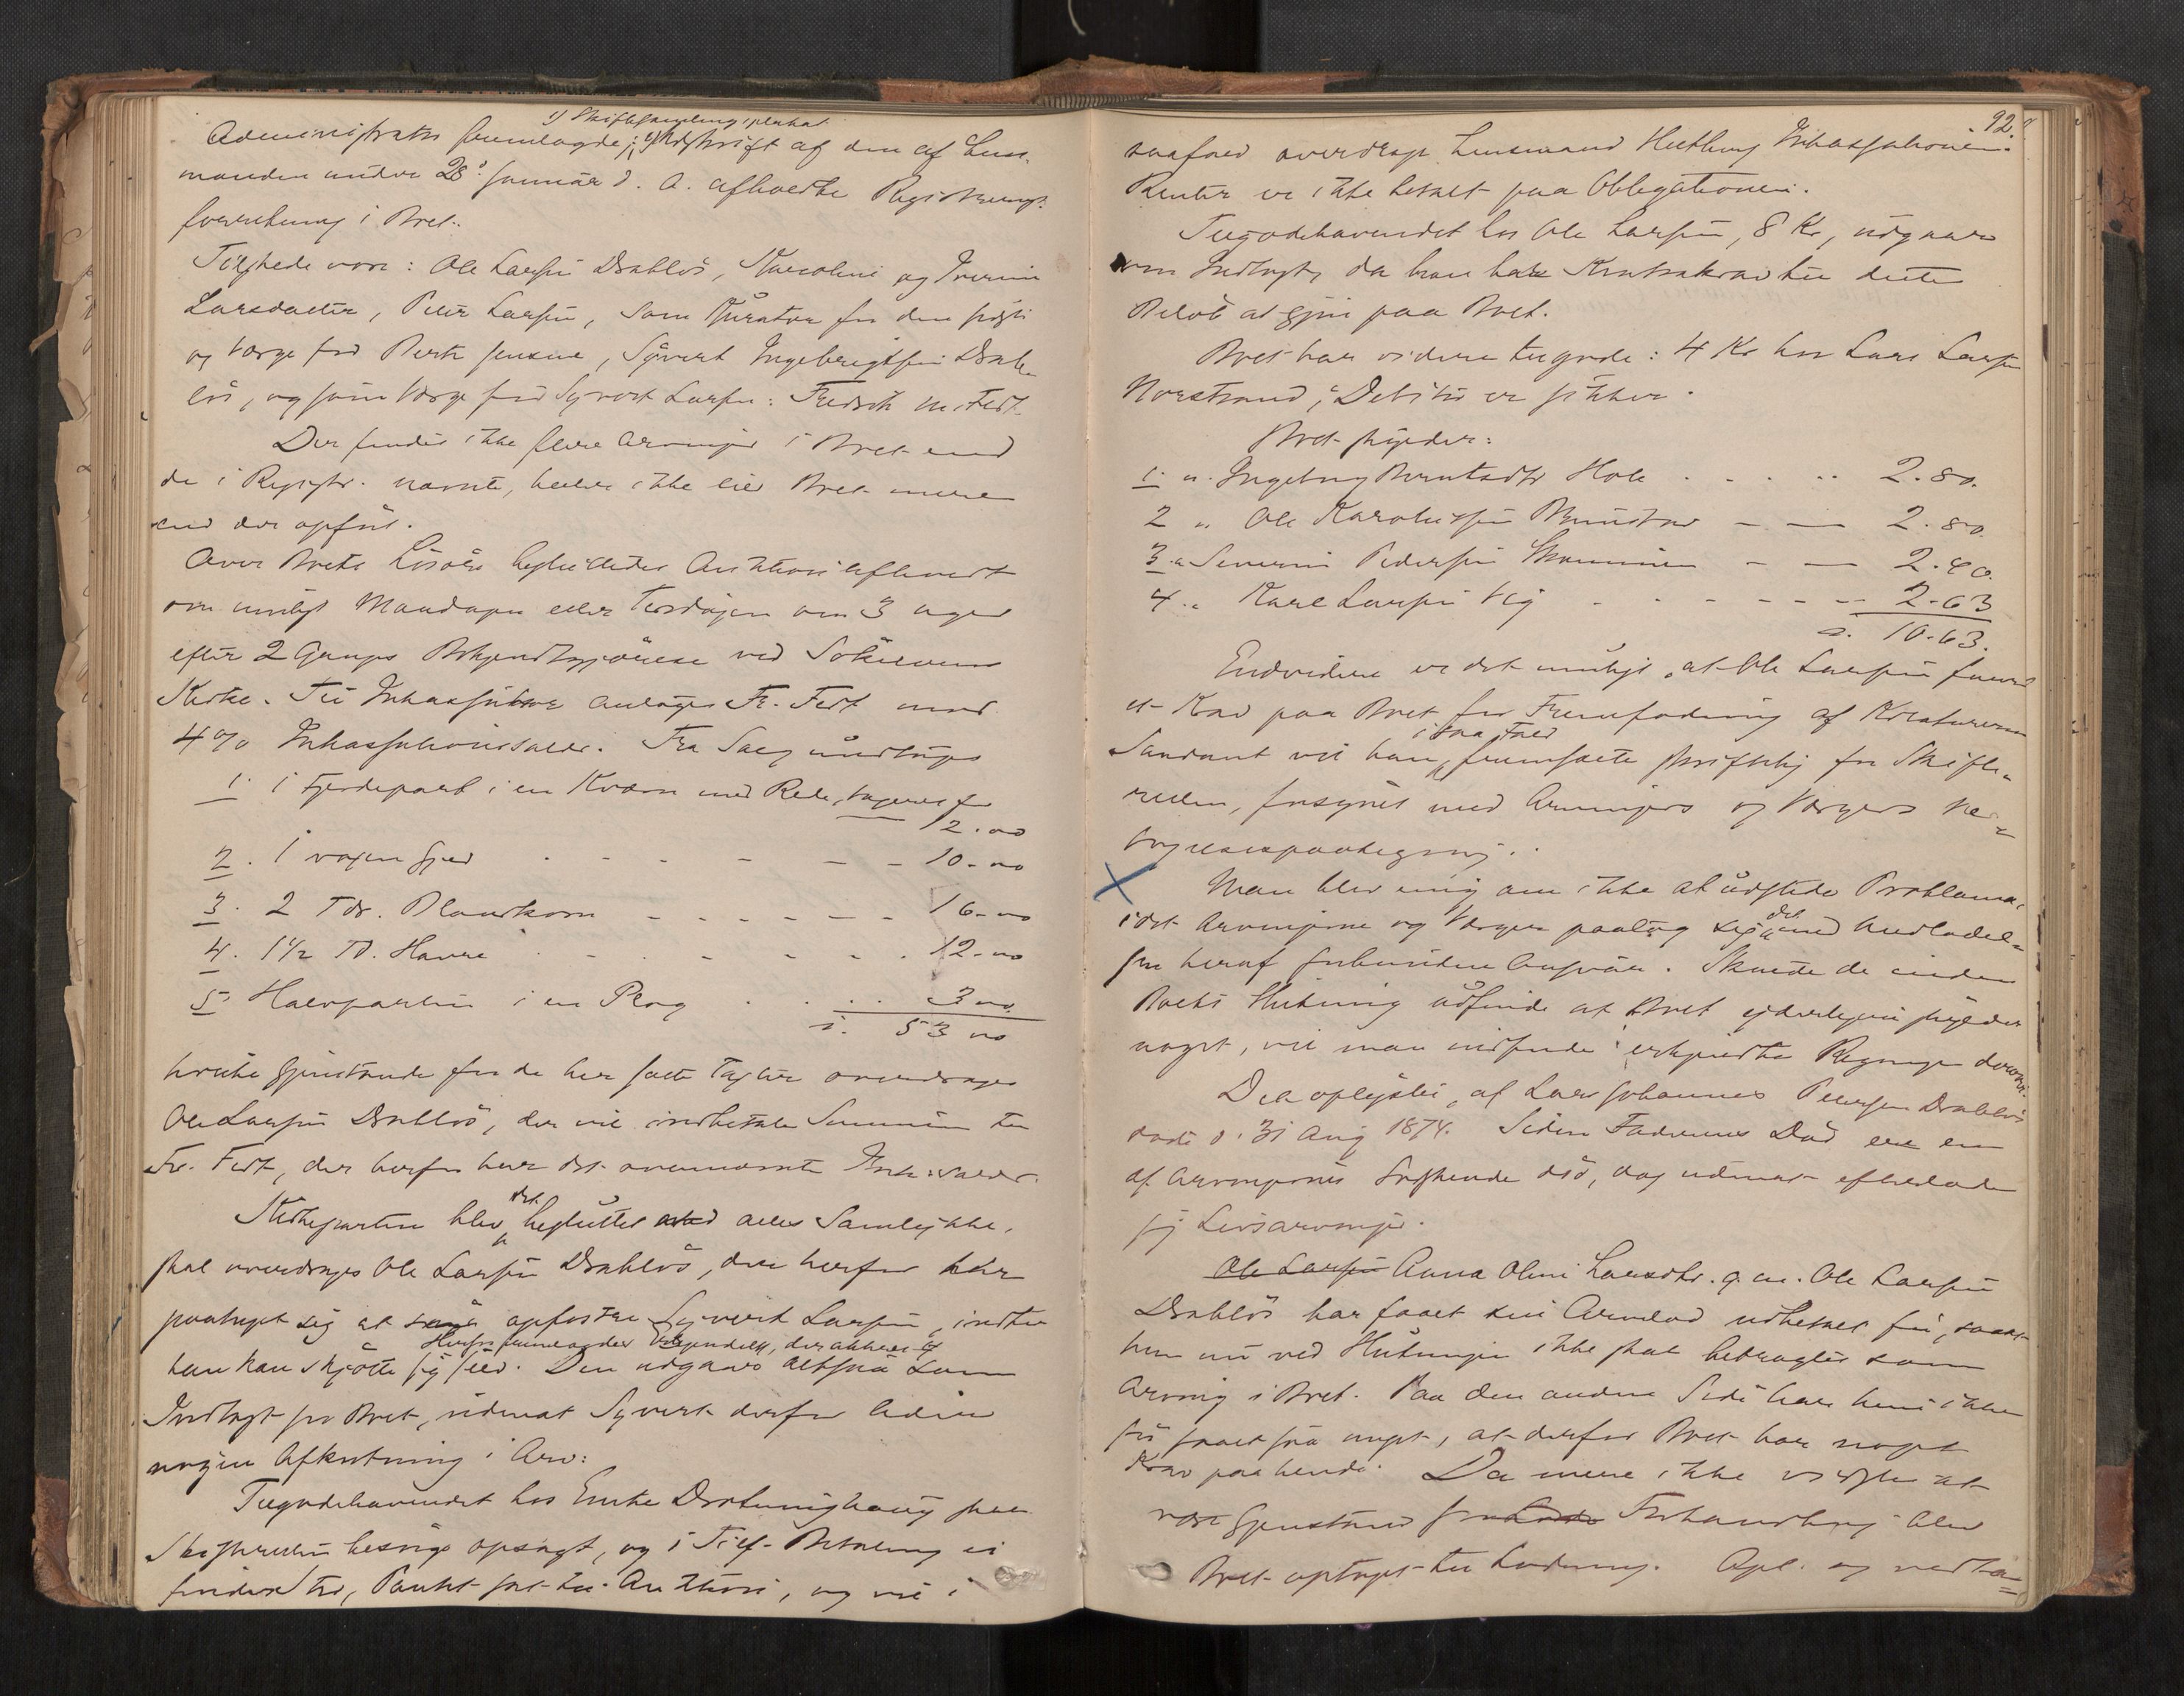 1) Skiftesamlingsplakat
Administrator fremlagde; 2) Udskrift af den af Lens-
manden under 28de Januar d. A. afholdte Registrerings-
forretning i Boet.
Tilstede vare: Ole Larsen Drabløs, Karoline og
Larsdatter, Peter Larsen, som Kurator for den sidste
og Værge for Berte Jensine, Syvert Ingebrigtsen Drab-
løs, og som Værge for Syvert Larsen: Fredrik M. Fedt.
Der findes ikke flere Arvinger i Boet end
de i Registr. nævnte, heller ikke eier Boet mere
end der opført.
Over Boets Løsøre besluttedes Auktion afholdt
om muligt Mandagen eller Tirsdagen om 3 Uger
efter 2 Ganges Bekjendtgjørelse ved Søkelvens
Kirke. Til Inkassator antages Fr. Fedt mod
4% Inkassationssalær. Fra Salg undtages
1. 1 Fjerdepart i en Kværn med Rede, tageres for
12.00
2. 1 voxen Gjed - - - - 10.00
3. 2 Tdr. Blandkorn - - - - - - 16.00
4. 1 1/2 Td. Havre - - - - - - 12.00
5 Halvparten i en Plog . . . . 3 00
s. 53 00
hvilke Gjenstande for de her satte Taxter overdrages
Ole Larsen Drabløs, der vil indbetale Summen til
Fr. Fedt, der herfor har det ovennævnte Ink:salær.
det
blev besluttet med alles Samtykke,
skal overdrages Ole Larsen Drabløs, der herfor har
paataget sig at opfostre Syvert Larsen, indtil
han kan skjøtte sig selv. Den udgaar altsaa som
Indtægt for Boet, uden at Syvert derfor lider
nogen Afkortning i Arv.
Tilgodehavendet hos Enke paa
Skifteretten besørge opsagt, og i Tilf. Betaling ei
finder sted, Pantet sat til Auktion, og vil i
92.
saafald overdrage Lensmand Inkassationen.
Renter er ikke betalt paa Obligationen.
Tilgodehavendet hos Ole Larsen, 8 Kr, udgaar
som Indtægt, da han har Kontrakrav til dette
Beløb at gjøre paa Boet.
Boet har videre tilgode: 4 Kr hos Lars Larsen
Norstrand; Debitor er sikker.
Boet skylder:
1 n. Ingeborg Berntsdtr Hole . . . . . 2.80.
2 " Ole Karolussen - - 2.80.
3 " Severin Pedersen - - 2.40.
4 " Karl Larsen Vig - - - - - - 2.63
s. 10.63.
Endvidere er det muligt, at Ole Larsen faar
et Krav paa Boet for Fremfodring af Kreaturerne
i saa Fald
Saadant vil han fremsætte skriftlig for Skifte-
retten, forsynet med Arvingers og Værgers Ved-
tagelsespaategning.
Man blev enig om ikke at udstede Proklama,
det
idet Arvingerne og Værger paatog sig med Undladel-
sen heraf forbundne Ansvar. Skulde de inden
Boets Slutning udfinde at Boet yderligere skylder
noget, vil man indsende erkjendte Regninger derover.
Det oplystes, at Lars Johannes Petersen Drabløs
døde d. 31 Aug 1874. Siden Faderens Død er en
af Arvingernes Søskende død, dog uden at efterlade
sig Livsarvinger.
Ole Larsen Anna Oline Larsdtr. g. m. Ole Larsen
Drabløs har faaet sin Arvelod udbetalt før, saa at
hun nu ved Slutningen ikke skal betragtes som
Arving i Boet. Paa den anden Side har hun ikke
før faaet saa meget, at derfor Boet har noget
Krav paa hende. Da mere ikke vidstes at
være Gjenstand for Forhandling blev
Boet optaget til Lodning. Opl. og vedta-